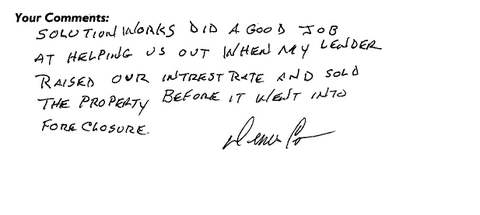 Your Comments:
SOLUTIONWORKS DID A GOOD JOB
AT HELPING US OUT WHEN MY LENDER
RAISED OUR INTREST RATE AND SOLD
THE PROPERTY BEFORE IT WENT INTO
FORECLOSURE.